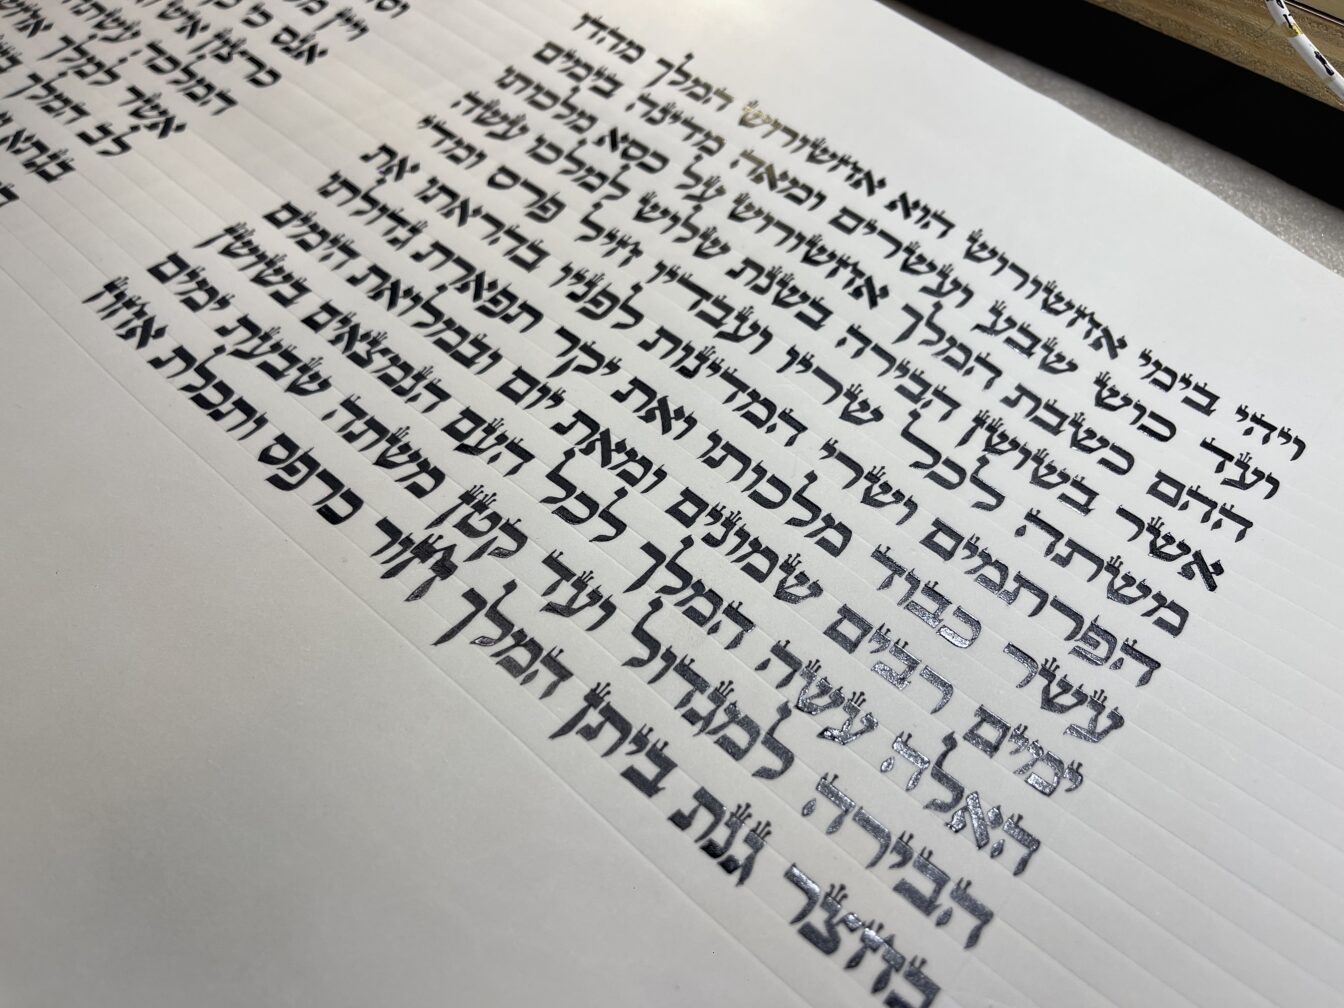 ויהי בימי אחשורוש הוא אחשורוש המלך מהדו
ועד כוש שבע ועשרים ומאה מדינה בימים
ההם כשבת המלך אחשורוש על כסא מלכותו
אשר בשושן הבירה בשנת שלוש למלכו עשה
משתה לכל שריו ועבדיו חיל פרס ומדי
הפרתמים ושרי המדינות לפניו בהראתו את
עשר כבוד מלכותו ואת יקר תפארת גדולתו
ימים רבים שמונים ומאת יום ובמלואת הימים
האלה עשה המלך לכל העם הנמצאים בשושן
הבירה למגדול ועד קטן משתה שבעת ימים
בחצר גנת ביתן המלך חור כרפס ותכלת אחוז
ויין
אנס כי
כרצון איש
המלכה עשתה
אשר למלך
לב המלך